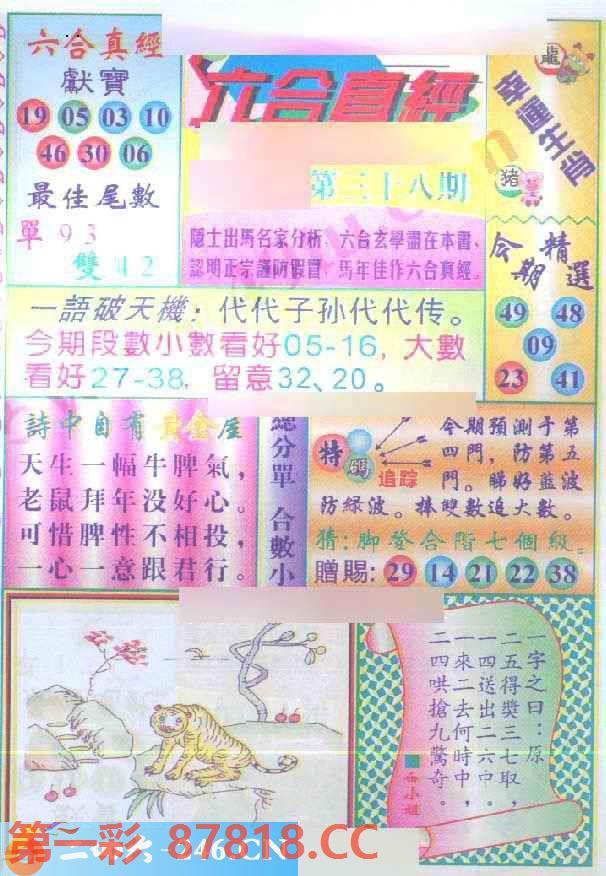 六合真經
獻寶
19 05 03 10
46 30 06
最佳尾數
單 9 3
雙 4 2
六合真經
第三十八期
隱士出馬名家分析，六合玄學盡在本書、
認明正宗謹防假冒，馬年佳作六合真經。
龍
幸運生肖
猪
今期精選
49 48
09
23 41
一語破天機：代代子孙代代传。
今期段數小數看好05-16，大數
看好27-38，留意32、20。
詩中自有黃金屋
天生一幅牛脾氣，
老鼠拜年没好心。
可惜脾性不相投，
一心一意跟君行。
總分單 合數小
特碼
追踪
今期預測于第
四門，防第五
門。睇好藍波
防綠波。捧雙數追大數。
猜：脚登合階七個級。
贈賜：29 14 21 22 38
一字之曰：原
二五得獎三七取，
一四送出二六中。
一來二去何時中，
二四哄搶九驚奇。
小姐
第一彩 87818.CC
246.CN